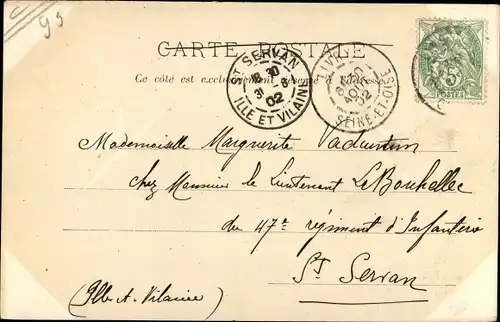 95
CARTE POSTALE
Ce côté est exclusivement réservé à l'adresse
ST SERVAN
31 -8
02
ILLE ET VILAINE
LIVRY
AOUT
02
SEINE-ET-OISE
5
POSTES
Mademoiselle Marguerite
chez Monsieur le Lieutenant Le Bouhellec
du 47e régiment d'Infanterie
St Servan
(Ille et Vilaine)